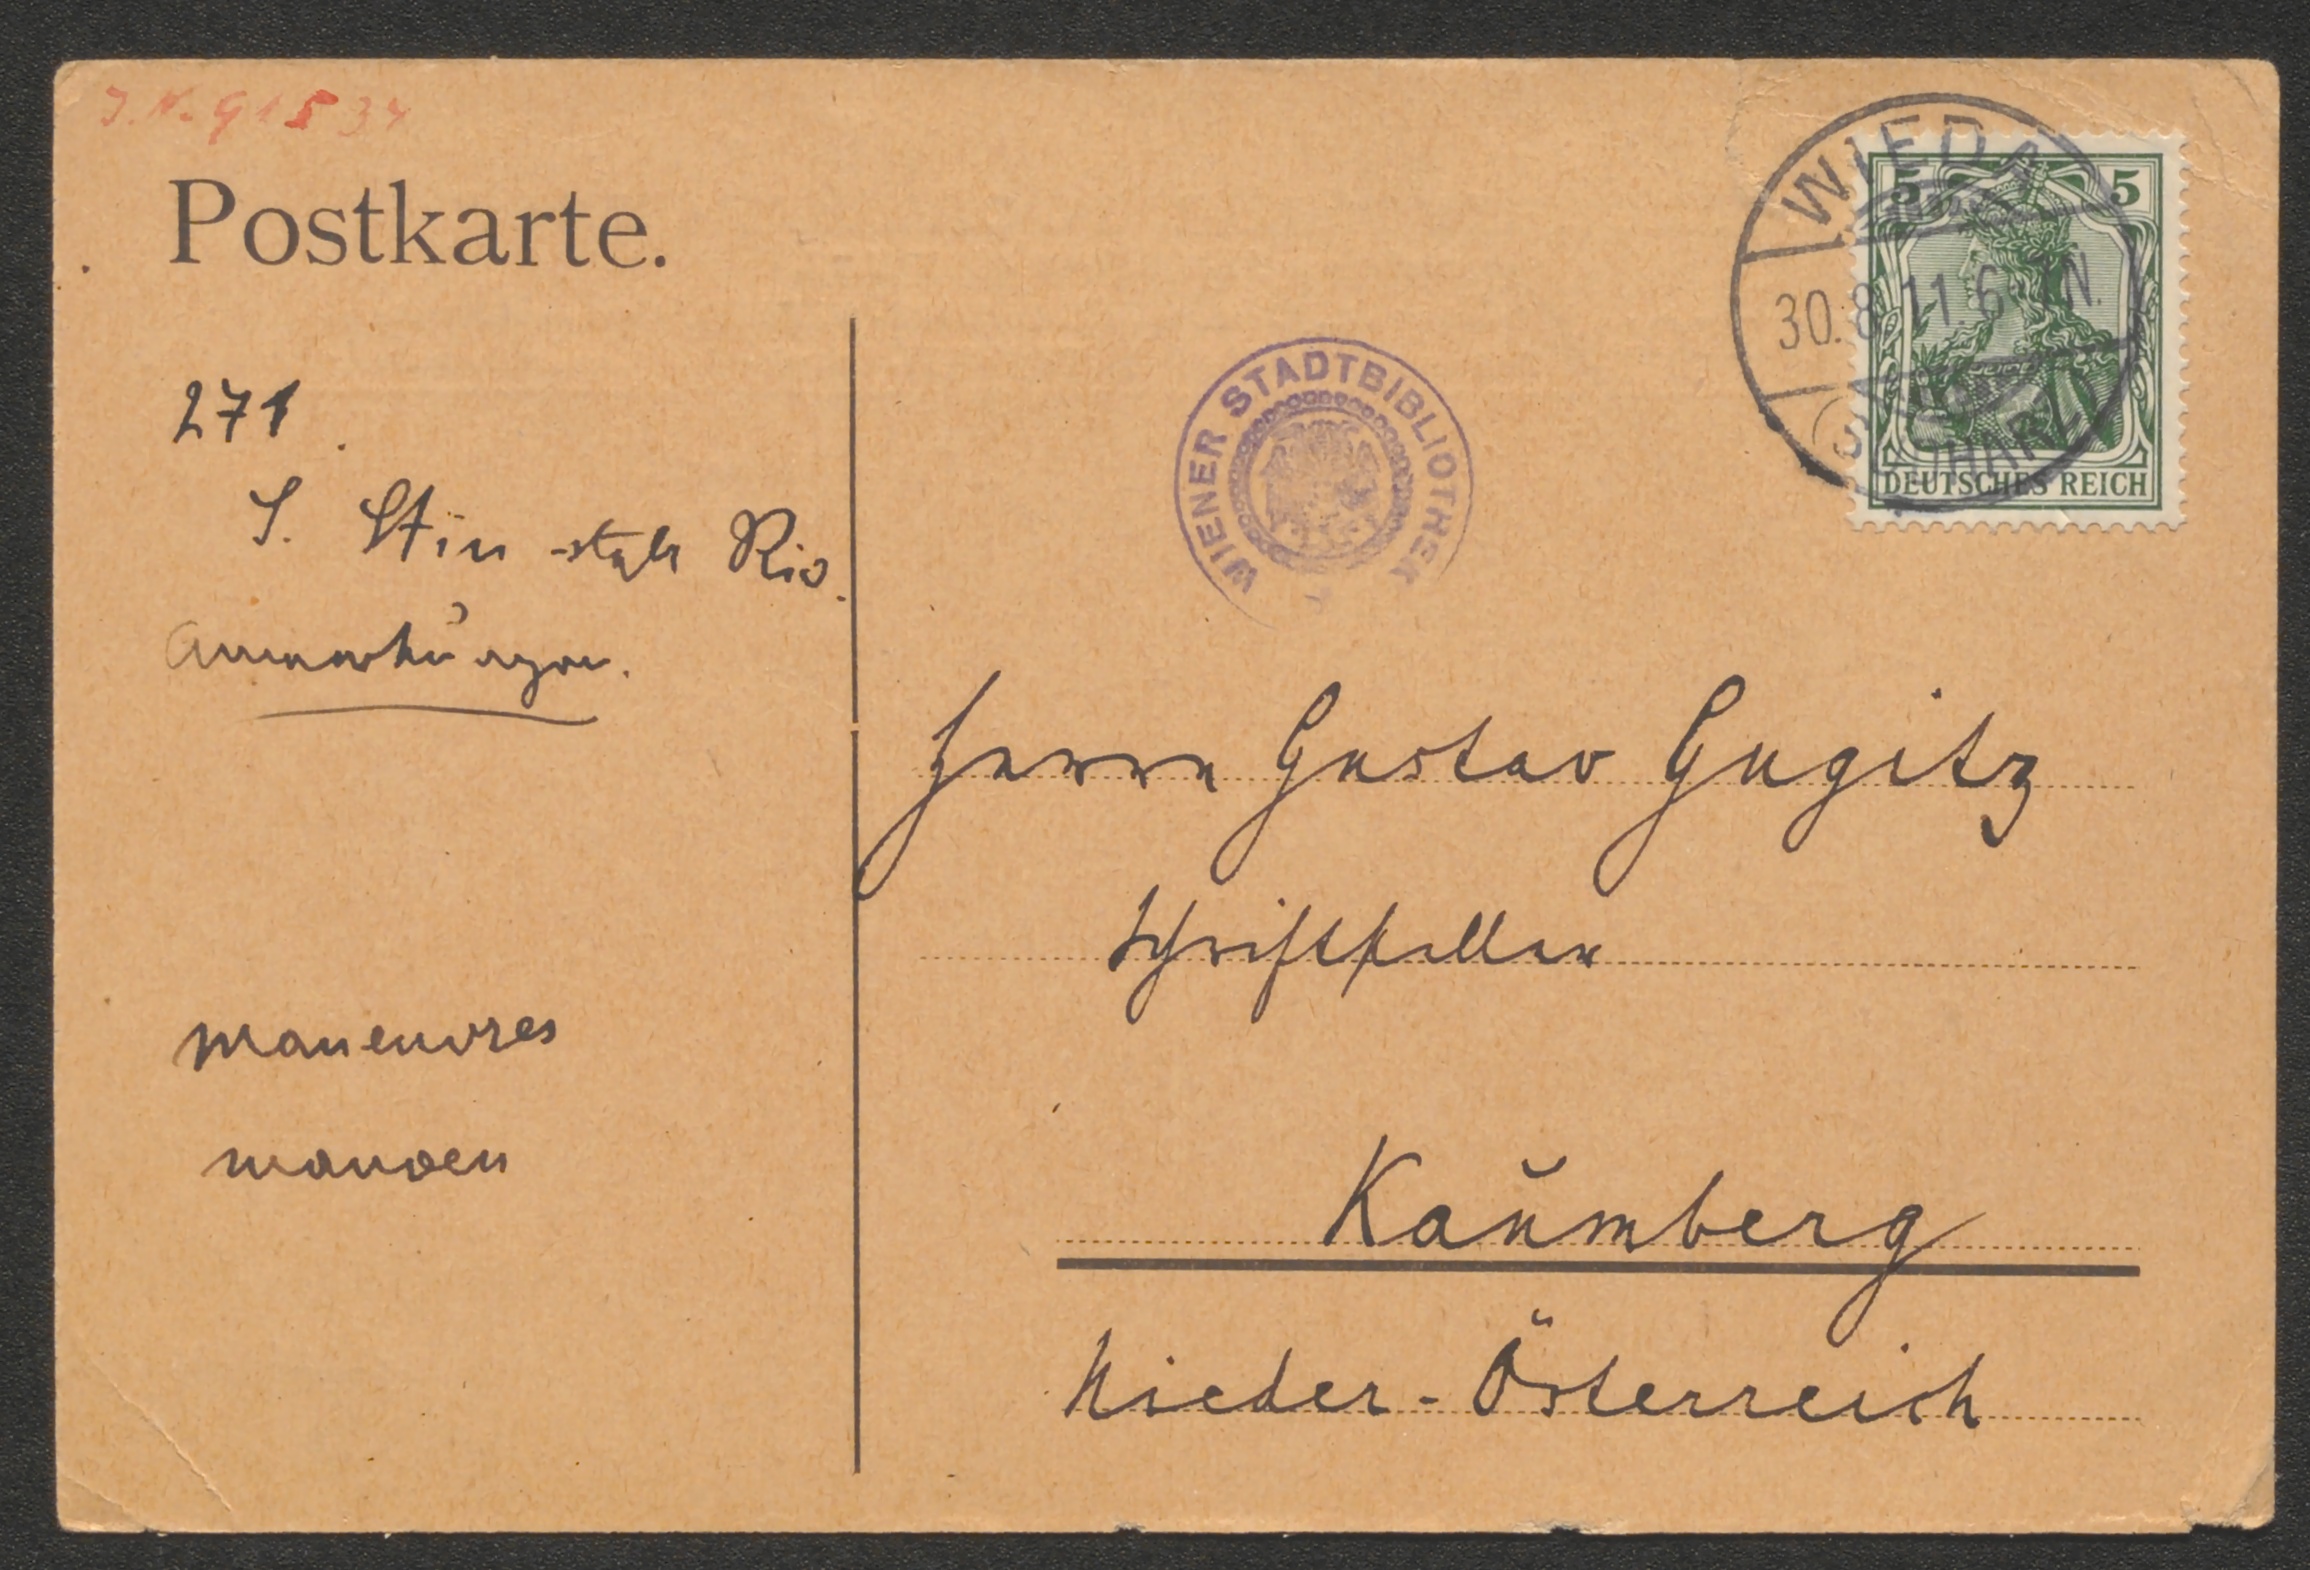 J.N. 91534
Postkarte.
WIEDA
30.8.11.6-7N.
(SÜDHARZ)
5 5
DEUTSCHES REICH
WIENER STADTBIBLIOTHEK
271.
S.
Anmerkungen.
Herrn Gustav Gugitz
Schriftsteller
manenvres
Kaumberg
Nieder-Österreich